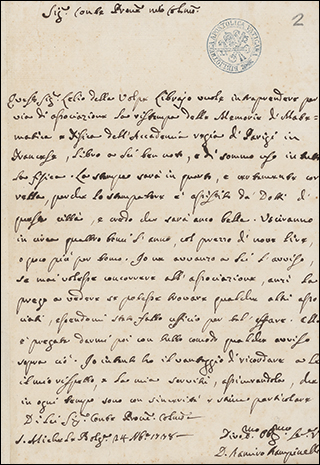 Sig.r Conte Pron.e mio Colmo.
2
Questo Sig.r Lelio della Volpe Librajo vuole intraprendere per
via di associazione la ristampa delle Memorie di Mate-
matica e Fisica dell'Accademia regia di Parigi in
Francese, libro a lei ben noto, e di sommo uso in tutta
la fisica. La stampa sarà in quarto, e
retta, perche lo stampatore è assistito da Dotti di
questa città, e credo che sarà anco bella. Usciranno
in circa quattro tomi l'anno, col prezzo di nove lire,
o poco più per tomo. Io ne avvanzo a lei l'avviso,
se mai volesse concorrere all'associazione, anzi la
prego a vedere se potesse trovare qualche altri asso
ciati, essendomi stato fatto ufficio per tal affare. Ella
è pregata darmi poi con tutto comodo qualche avviso
sopra ciò. Io intanto ho il vantaggio di ricordare a lei
il mio rispetto e la mia servitù, assicurandola, che
in ogni tempo sono con sincerità e stima particolare
Di lei Sig.r Conte Pron.e Colmo
S. Michele Bolog.a 24
D. Ramiro Rampinelli